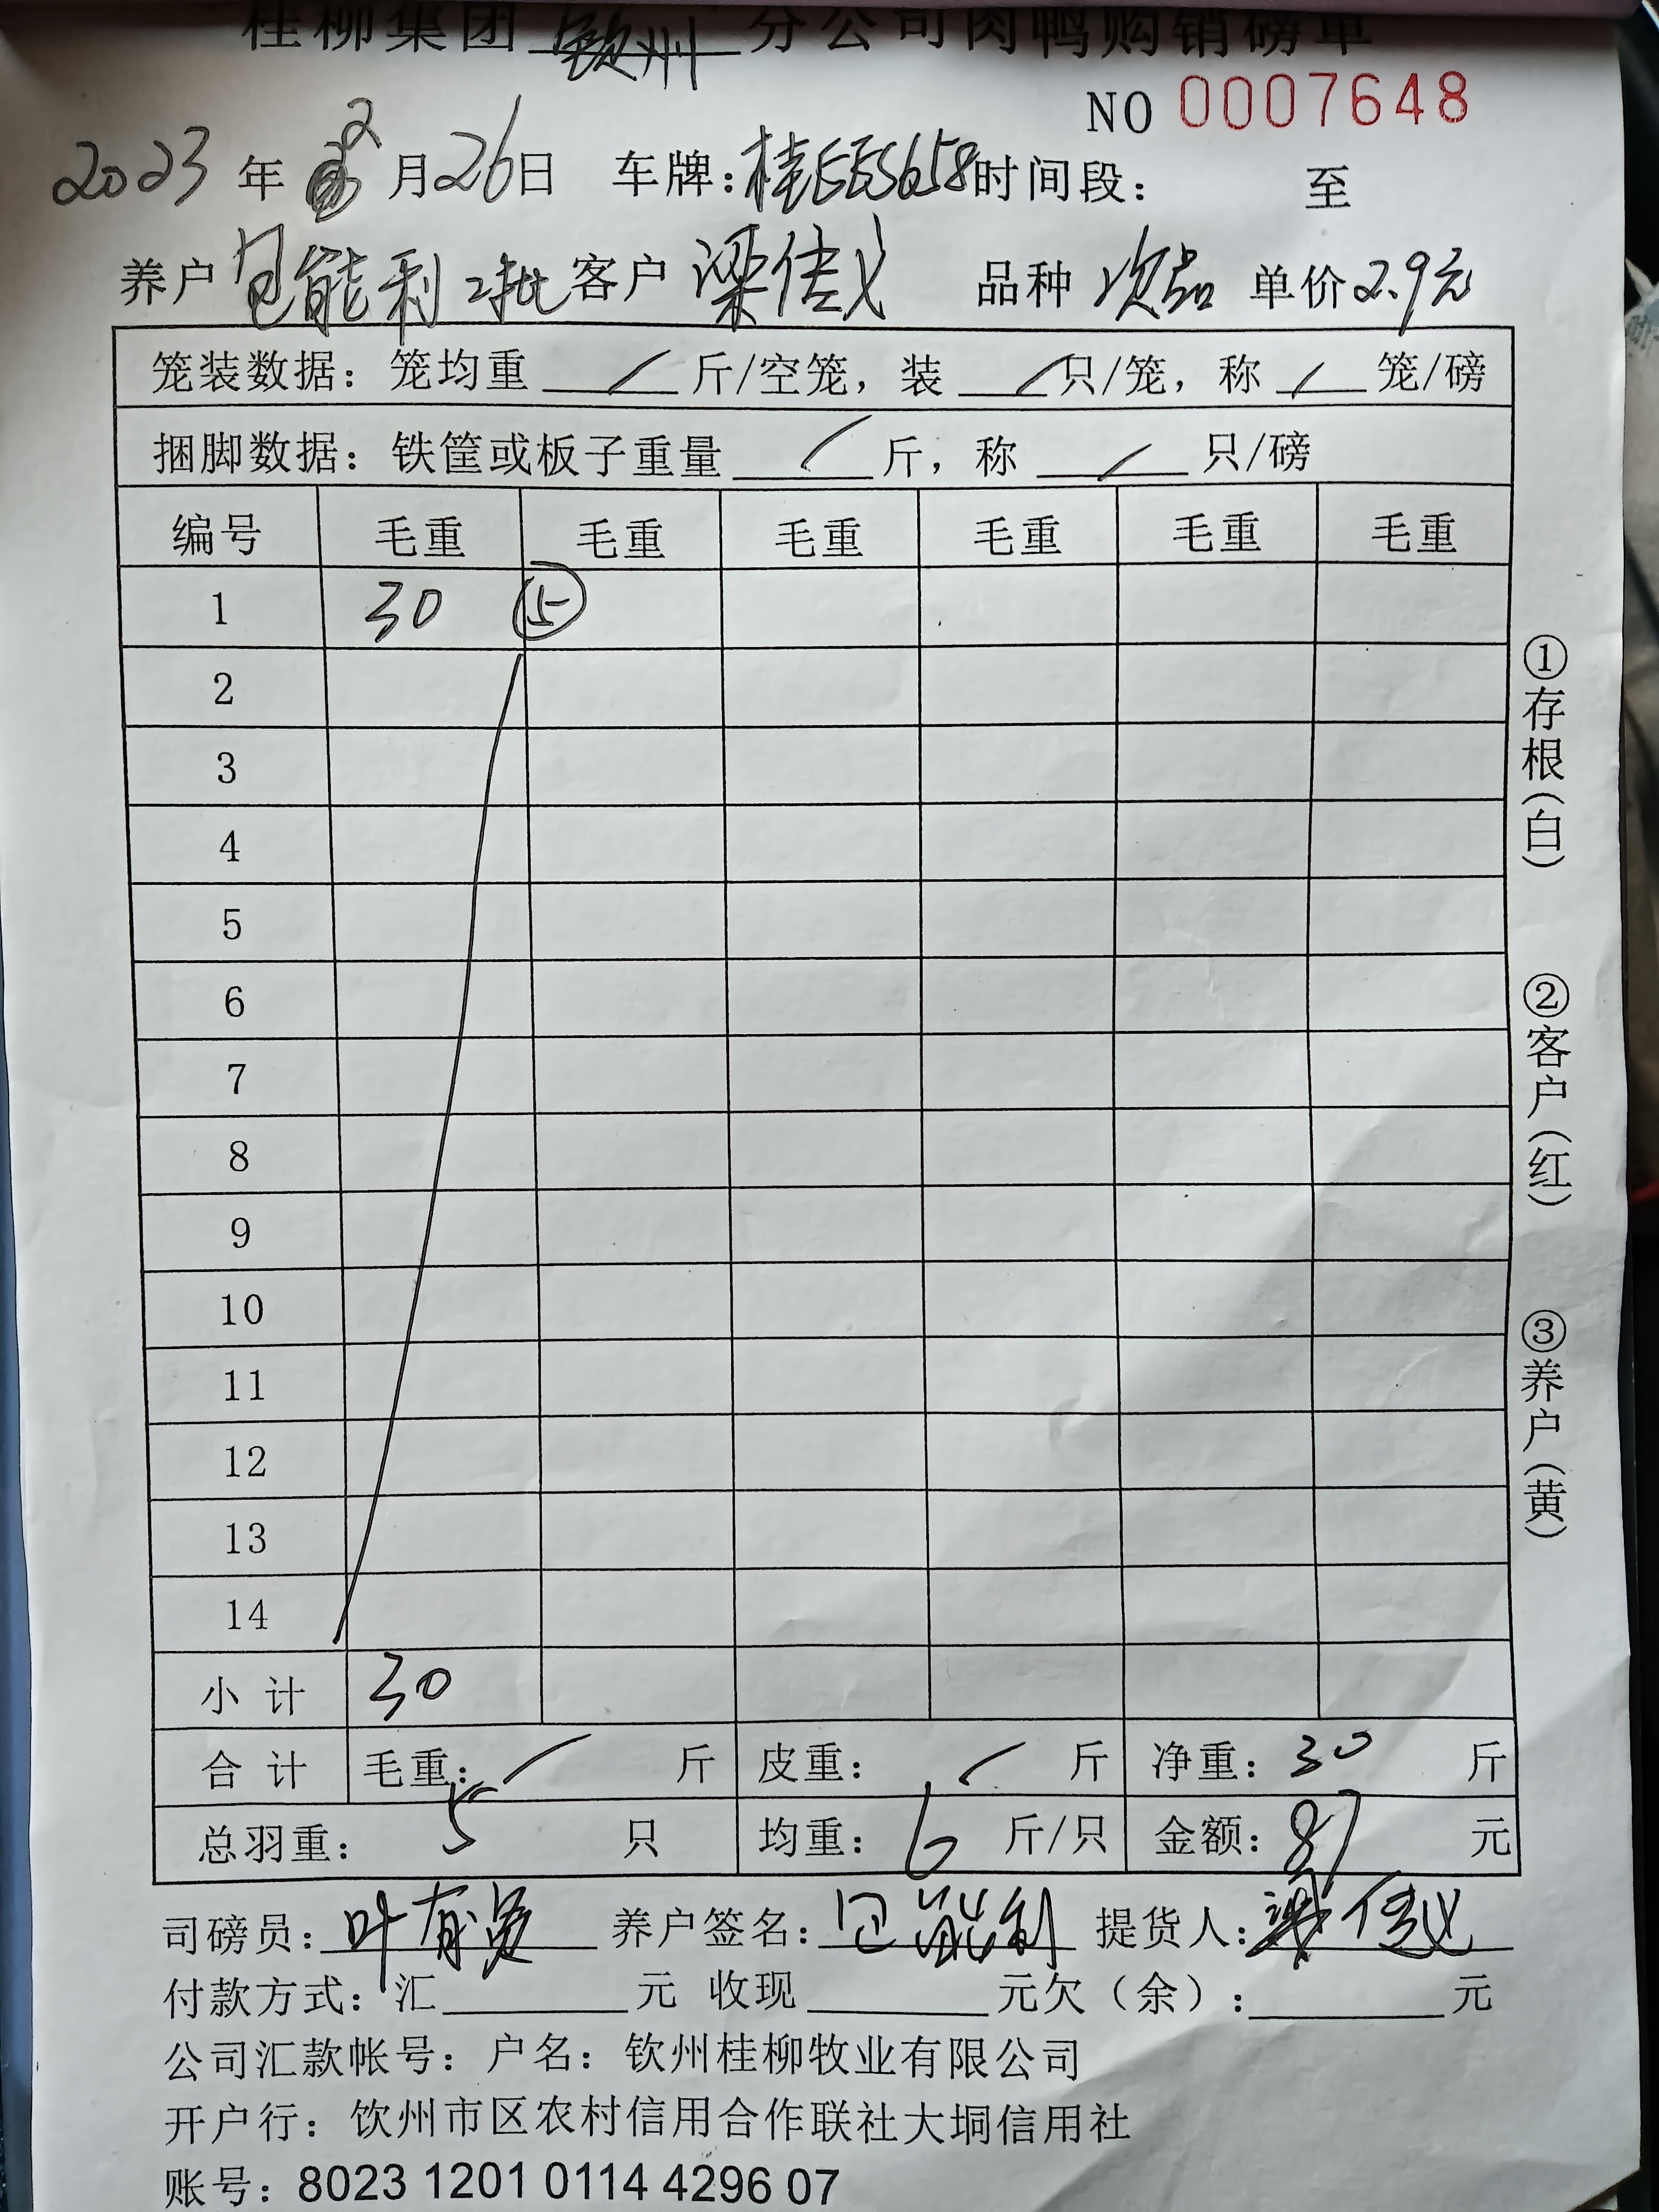 桂柳集团 钦州 分公司肉鸭购销磅单
NO 0007648
2023 年 2 月 26 日 车牌：桂EES658 时间段： 至
养户 包能利 2批 客户 梁信义 品种 次品 单价 2.9元
笼装数据：笼均重 / 斤/空笼，装 / 只/笼，称 / 笼/磅
捆脚数据：铁筐或板子重量 / 斤，称 / 只/磅
编号 毛重 毛重 毛重 毛重 毛重 毛重
1 30 ⑤
2
3
4
5
6
7
8
9
10
11
12
13
14
小计 30
合计 毛重： / 斤 皮重： / 斤 净重：30 斤
总羽重： 5 只 均重： 6 斤/只 金额：87 元
司磅员：叶有 养户签名：包能利 提货人：梁信义
付款方式：汇 元 收现 元欠（余）： 元
公司汇款帐号：户名：钦州桂柳牧业有限公司
开户行：钦州市区农村信用合作联社大垌信用社
账号：8023 1201 0114 4296 07
①存根（白）
②客户（红）
③养户（黄）